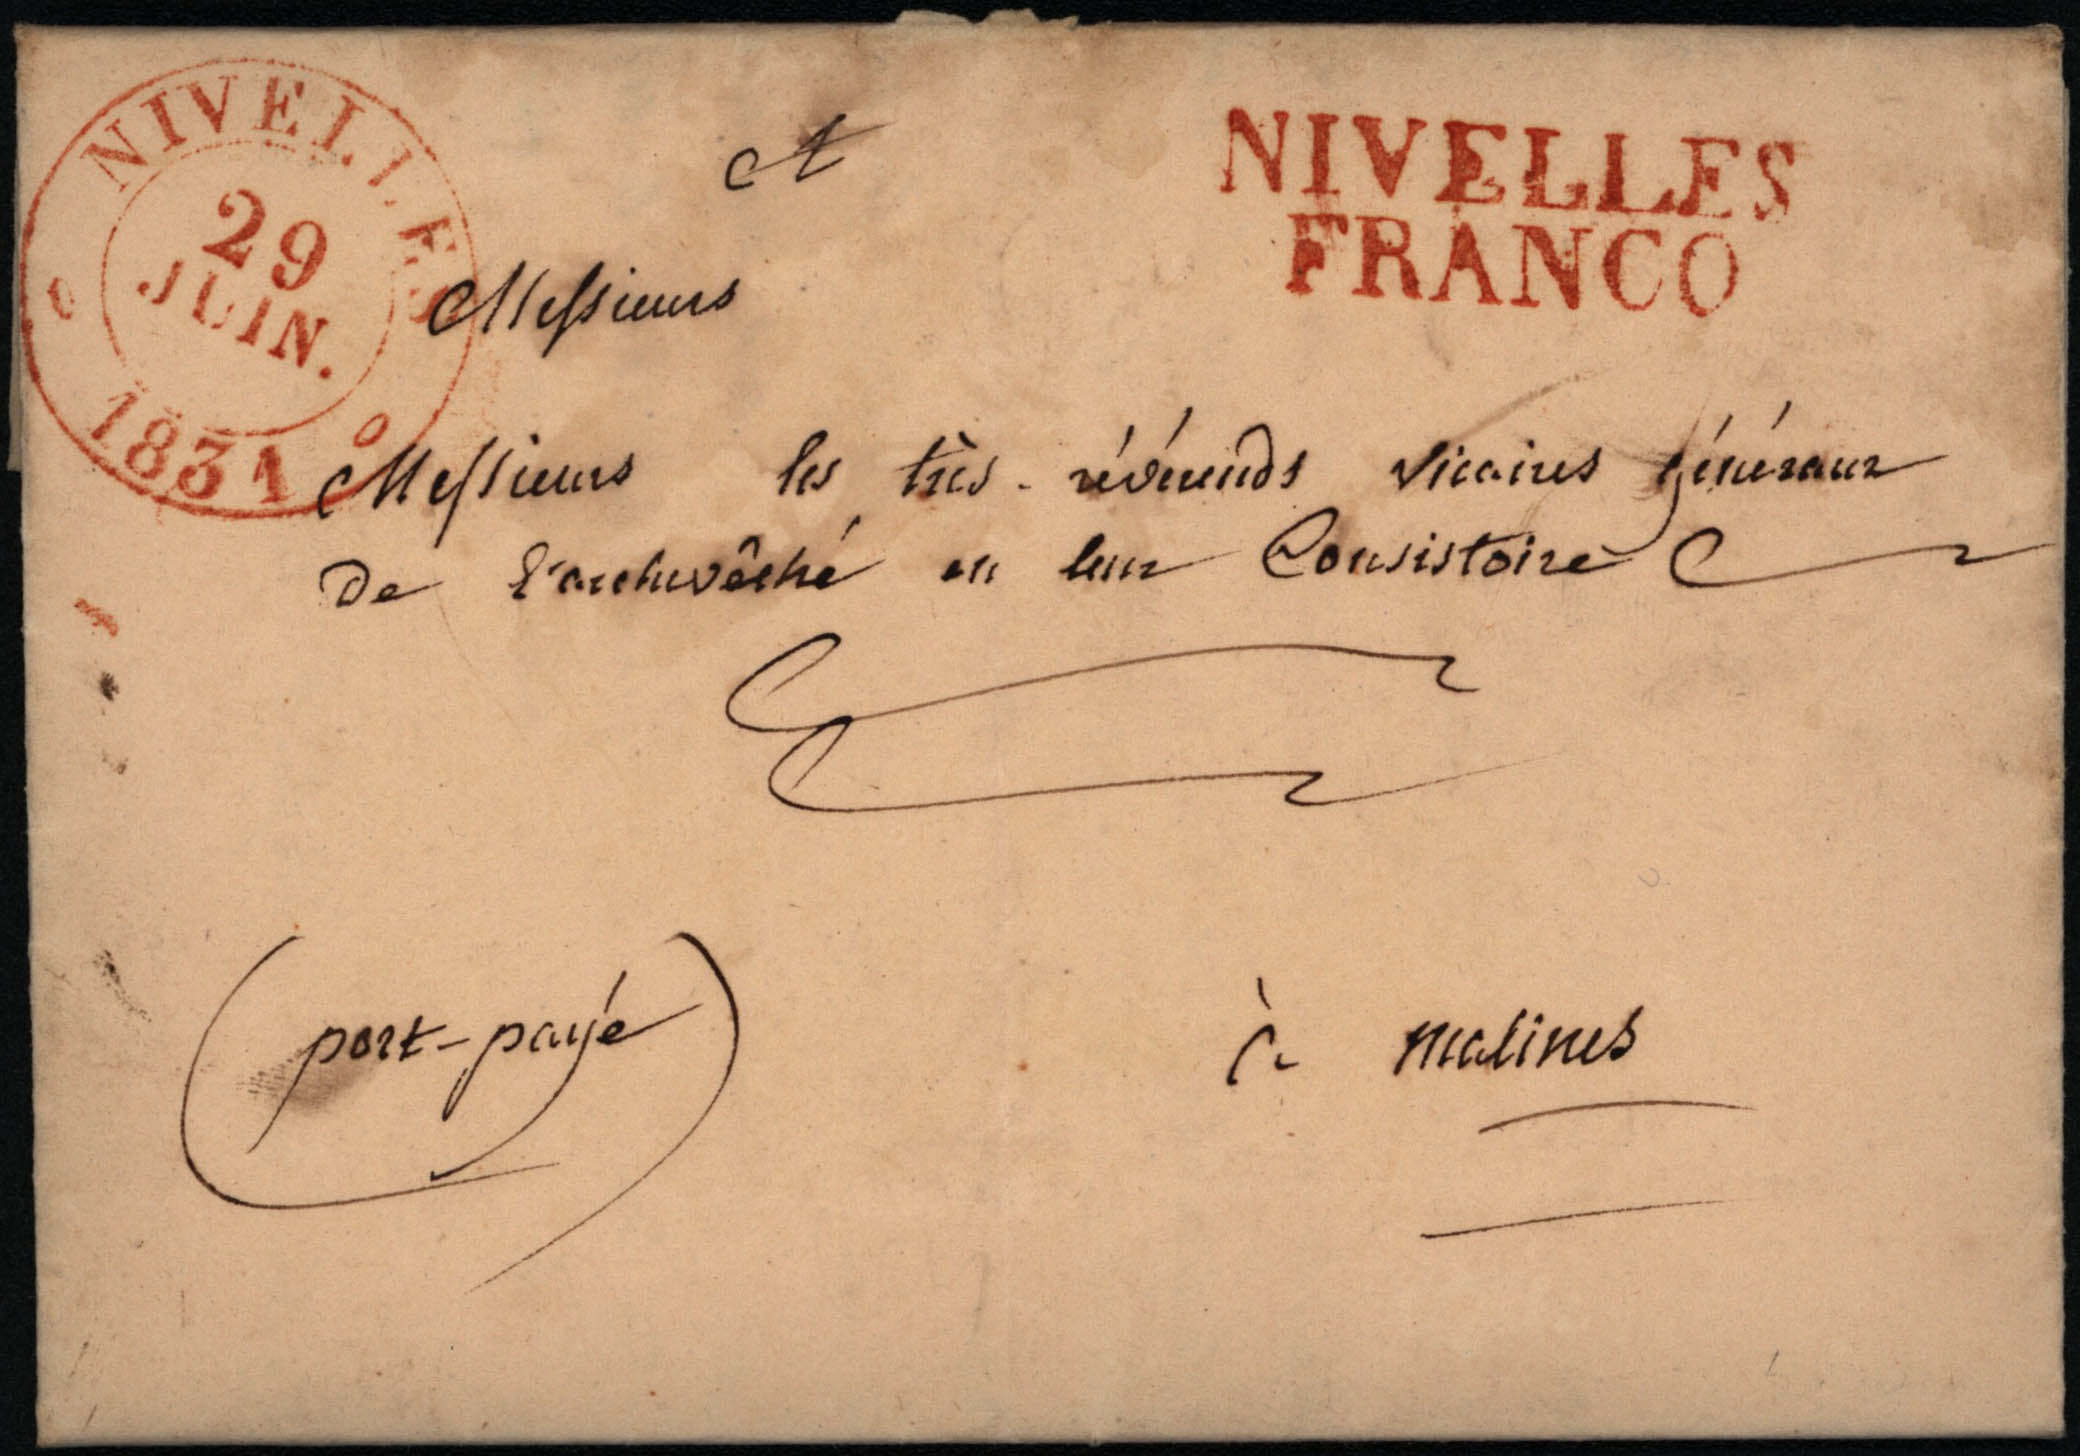 NIVELLES
29
JUIN.
1831
NIVELLES
FRANCO
A
Messieurs
Messieurs les très-révérends vicaires généraux
De l'archevêché en leur Consistoire
(port-payé)
à malines